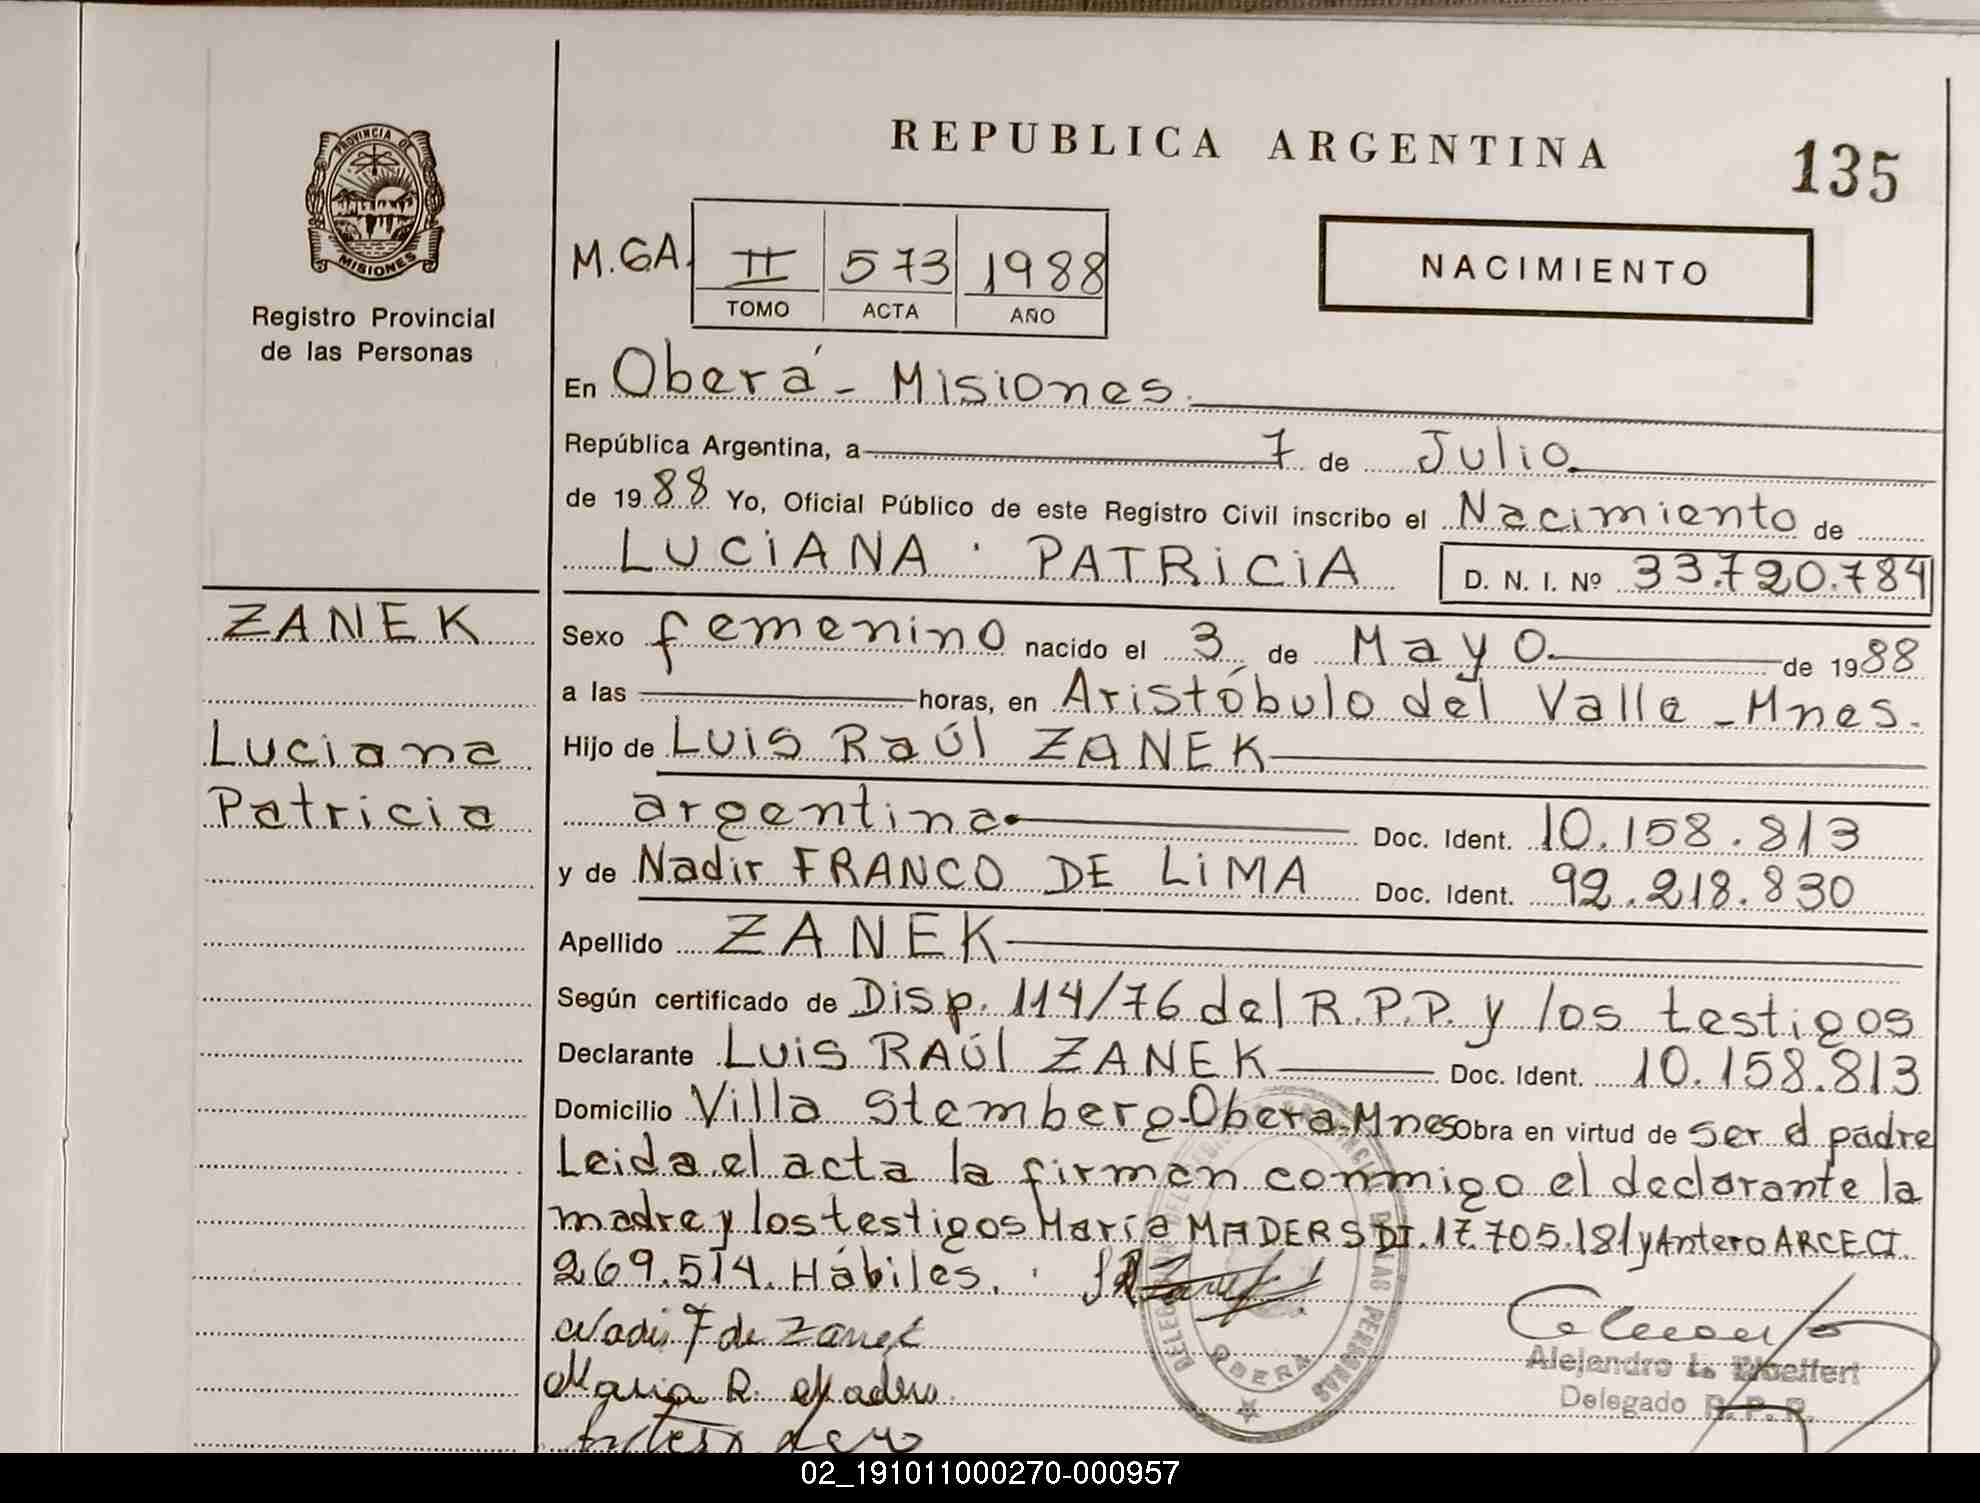 REPUBLICA ARGENTINA
135
PROVINCIA DE
MISIONES
Registro Provincial
de las Personas
M.GA. II 573 1988
TOMO ACTA AÑO
NACIMIENTO
En Oberá - Misiones.
República Argentina, a 7 de Julio
de 1988 Yo, Oficial Público de este Registro Civil inscribo el Nacimiento de
LUCIANA PATRICIA D. N. I. Nº 33.720.784
ZANEK
Luciana
Patricia
Sexo femenino nacido el 3 de Mayo de 1988
a las horas, en Aristóbulo del Valle - Mnes.
Hijo de Luis Raúl ZANEK
argentina Doc. Ident. 10.158.813
y de Nadir FRANCO DE LIMA Doc. Ident. 92.218.830
Apellido ZANEK
Según certificado de Disp. 114/76 del R.P.P. y los testigos
Declarante LUIS RAÚL ZANEK Doc. Ident. 10.158.813
Domicilio Villa Stemberg-Oberá-Mnes Obra en virtud de ser el padre
Leida el acta la firman conmigo el declarante la
madre y los testigos María MADERS DI. 17.705.181 y Antero ARCE CI.
269.514. Hábiles.
Nadir F de Zanek
Maria R. Maders
OBERA
Alejandro L.
Delegado R. P. P.
02_191011000270-000957